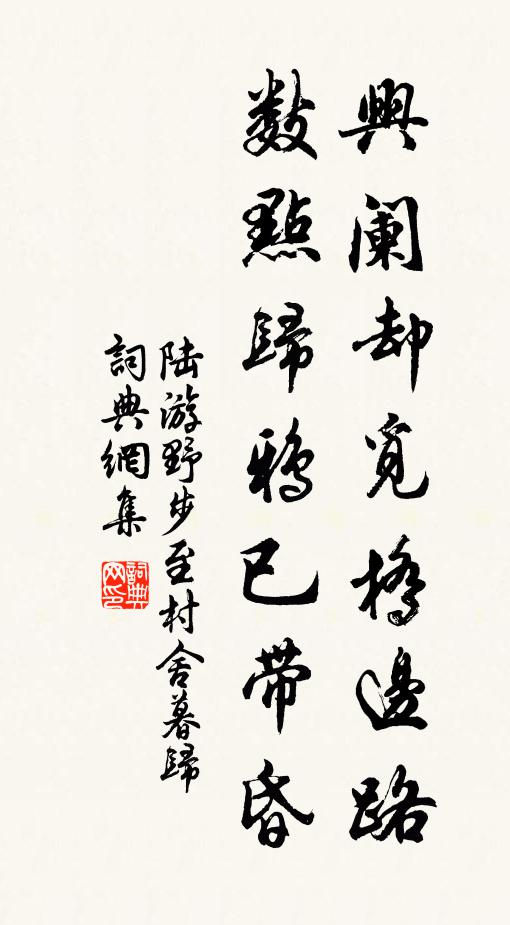 興闌却覓橋邊路
數點歸鴉已帶昏
陆游野步至村舍暮歸
詞典網集
詞典
网印